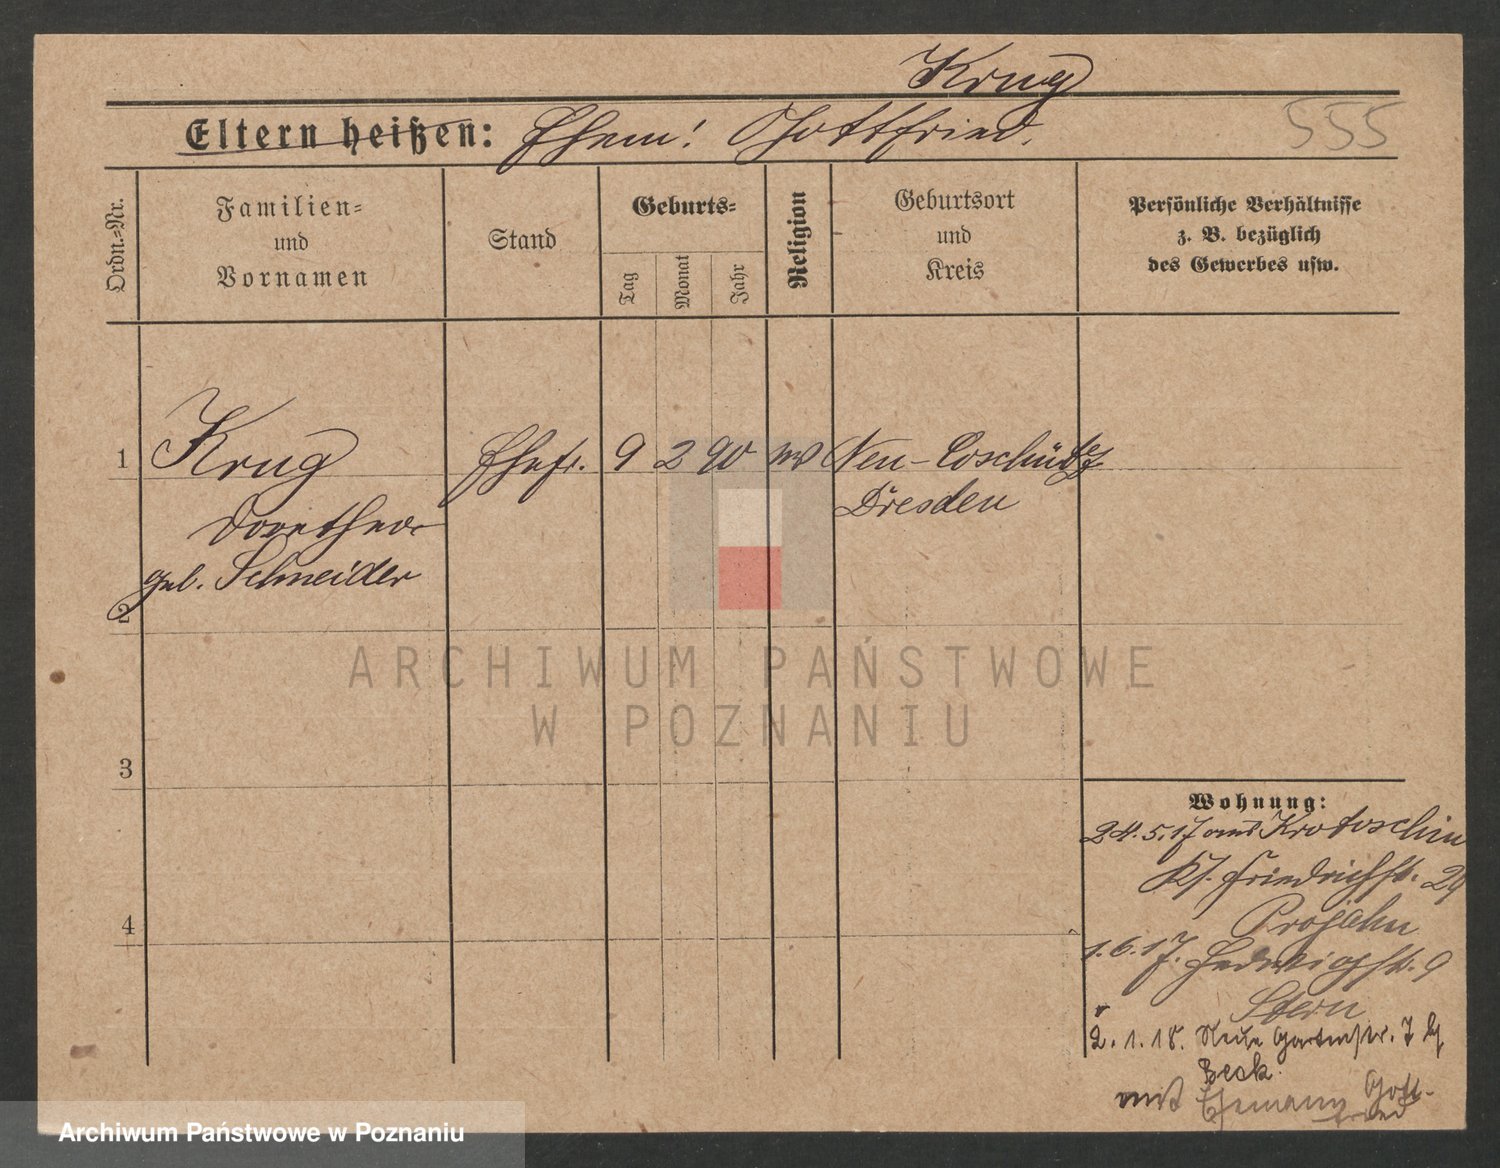 Krug
Eltern heißen: Ehem! Gottfried.
555
Ordn.-Nr.
Familien-
und
Vornamen
Stand
Geburts-
Tag
Monat
Jahr
Religion
Geburtsort
und
Kreis
Persönliche Verhältnisse
z. B. bezüglich
des Gewerbes usw.
1 Krug Ehefr. 9 2 90 Neu-Coschütz
Dorothea Dresden
geb. Schneider
2
3
4
Wohnung:
24.5.17 aus Krotoschin
Friedrichstr. 29
Projahn
1.6.17. Hedwigstr. 9
Stern
2.1.18. Neue Gartenstr. 7
Beck.
mit Ehemann Gott-
fried
ARCHIWUM PAŃSTWOWE
W POZNANIU
Archiwum Państwowe w Poznaniu